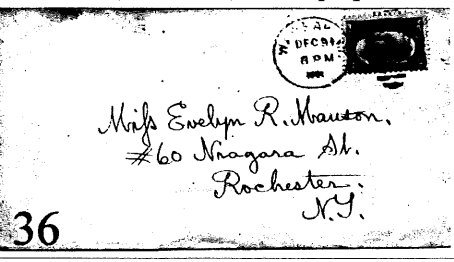 DEC 9
6 PM
Miss Evelyn R. Manson.
#60 Niagara St.
Rochester.
N.Y.
36